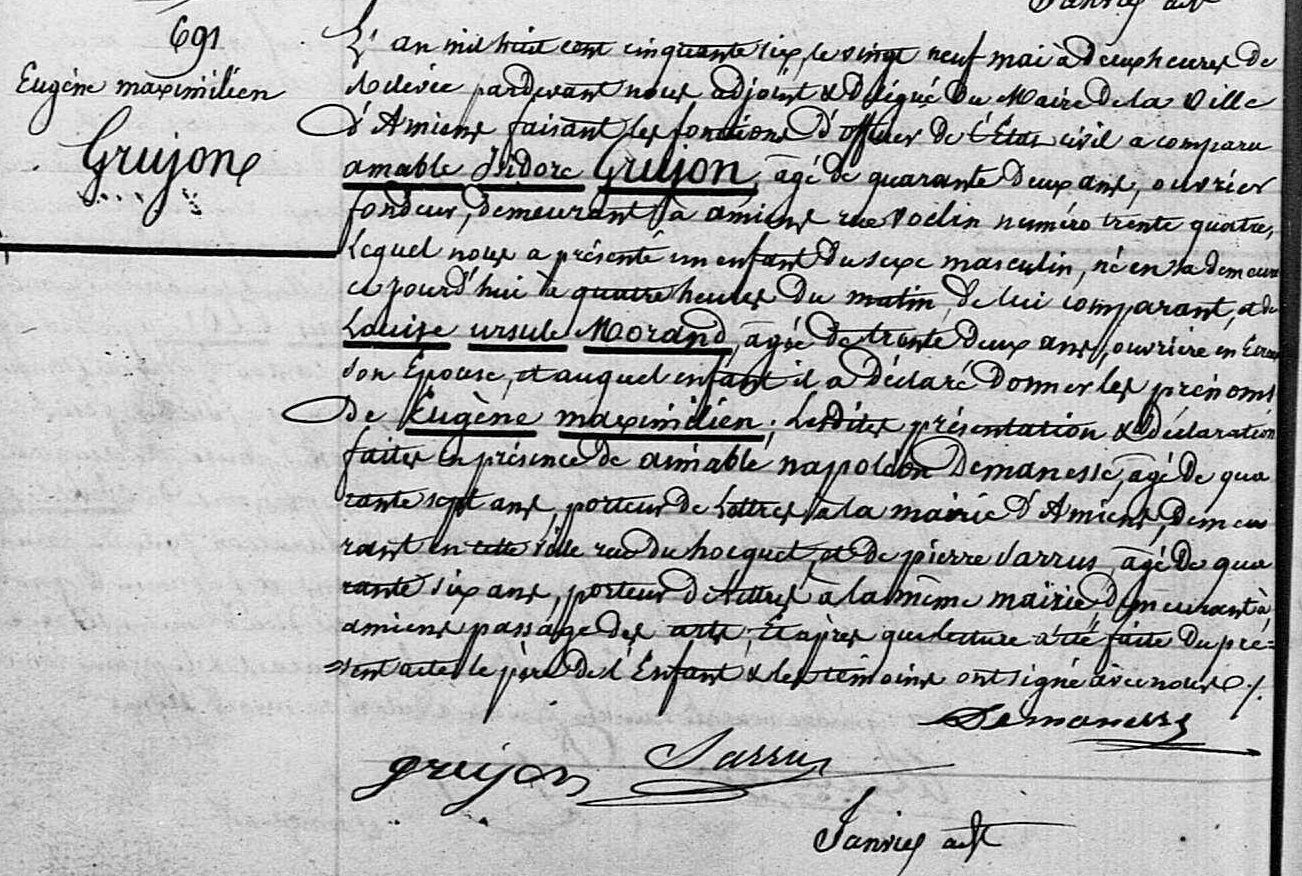 Janvier adt
691
Eugène maximilien
Grujon
L'an mil huit cent cinquante six, le vingt neuf mai à deux heures de
relevée pardevant nous adjoint & délégué du Maire de la Ville
d'Amiens faisant les fonctions d'officier de l'Etat civil a comparu
amable Isidore Grujon, agé de quarante deux ans, ouvrier
fondeur, demeurant à amiens rue voclin numéro trente quatre,
Lequel nous a présenté un enfant du sexe masculin, né en sa demeure
cejourd'hui à quatre heures du matin, de lui comparant, et de
Louise ursule Morand, agée de trente deux ans, ouvrière en
son Epouse, et auquel enfant il a déclaré donner les prénoms
de Eugène maximilien; Lesdites présentation & déclaration
faites en présence de aimable napoléon Demanesse, agé de qua
rante sept ans, porteur de Lettres à la mairie d'Amiens, demeu
rant en cette ville rue du hocquet, et de pierre Sarrus, agé de qua
rante six ans, porteur de lettres à la même mairie demeurant à
amiens passage des arts, Et après que lecture a été faite du pré=
=sent acte le père de l'Enfant & les témoins ont signé avec nous ./.
Demanesse
grujon Sarrus
Janvier adt